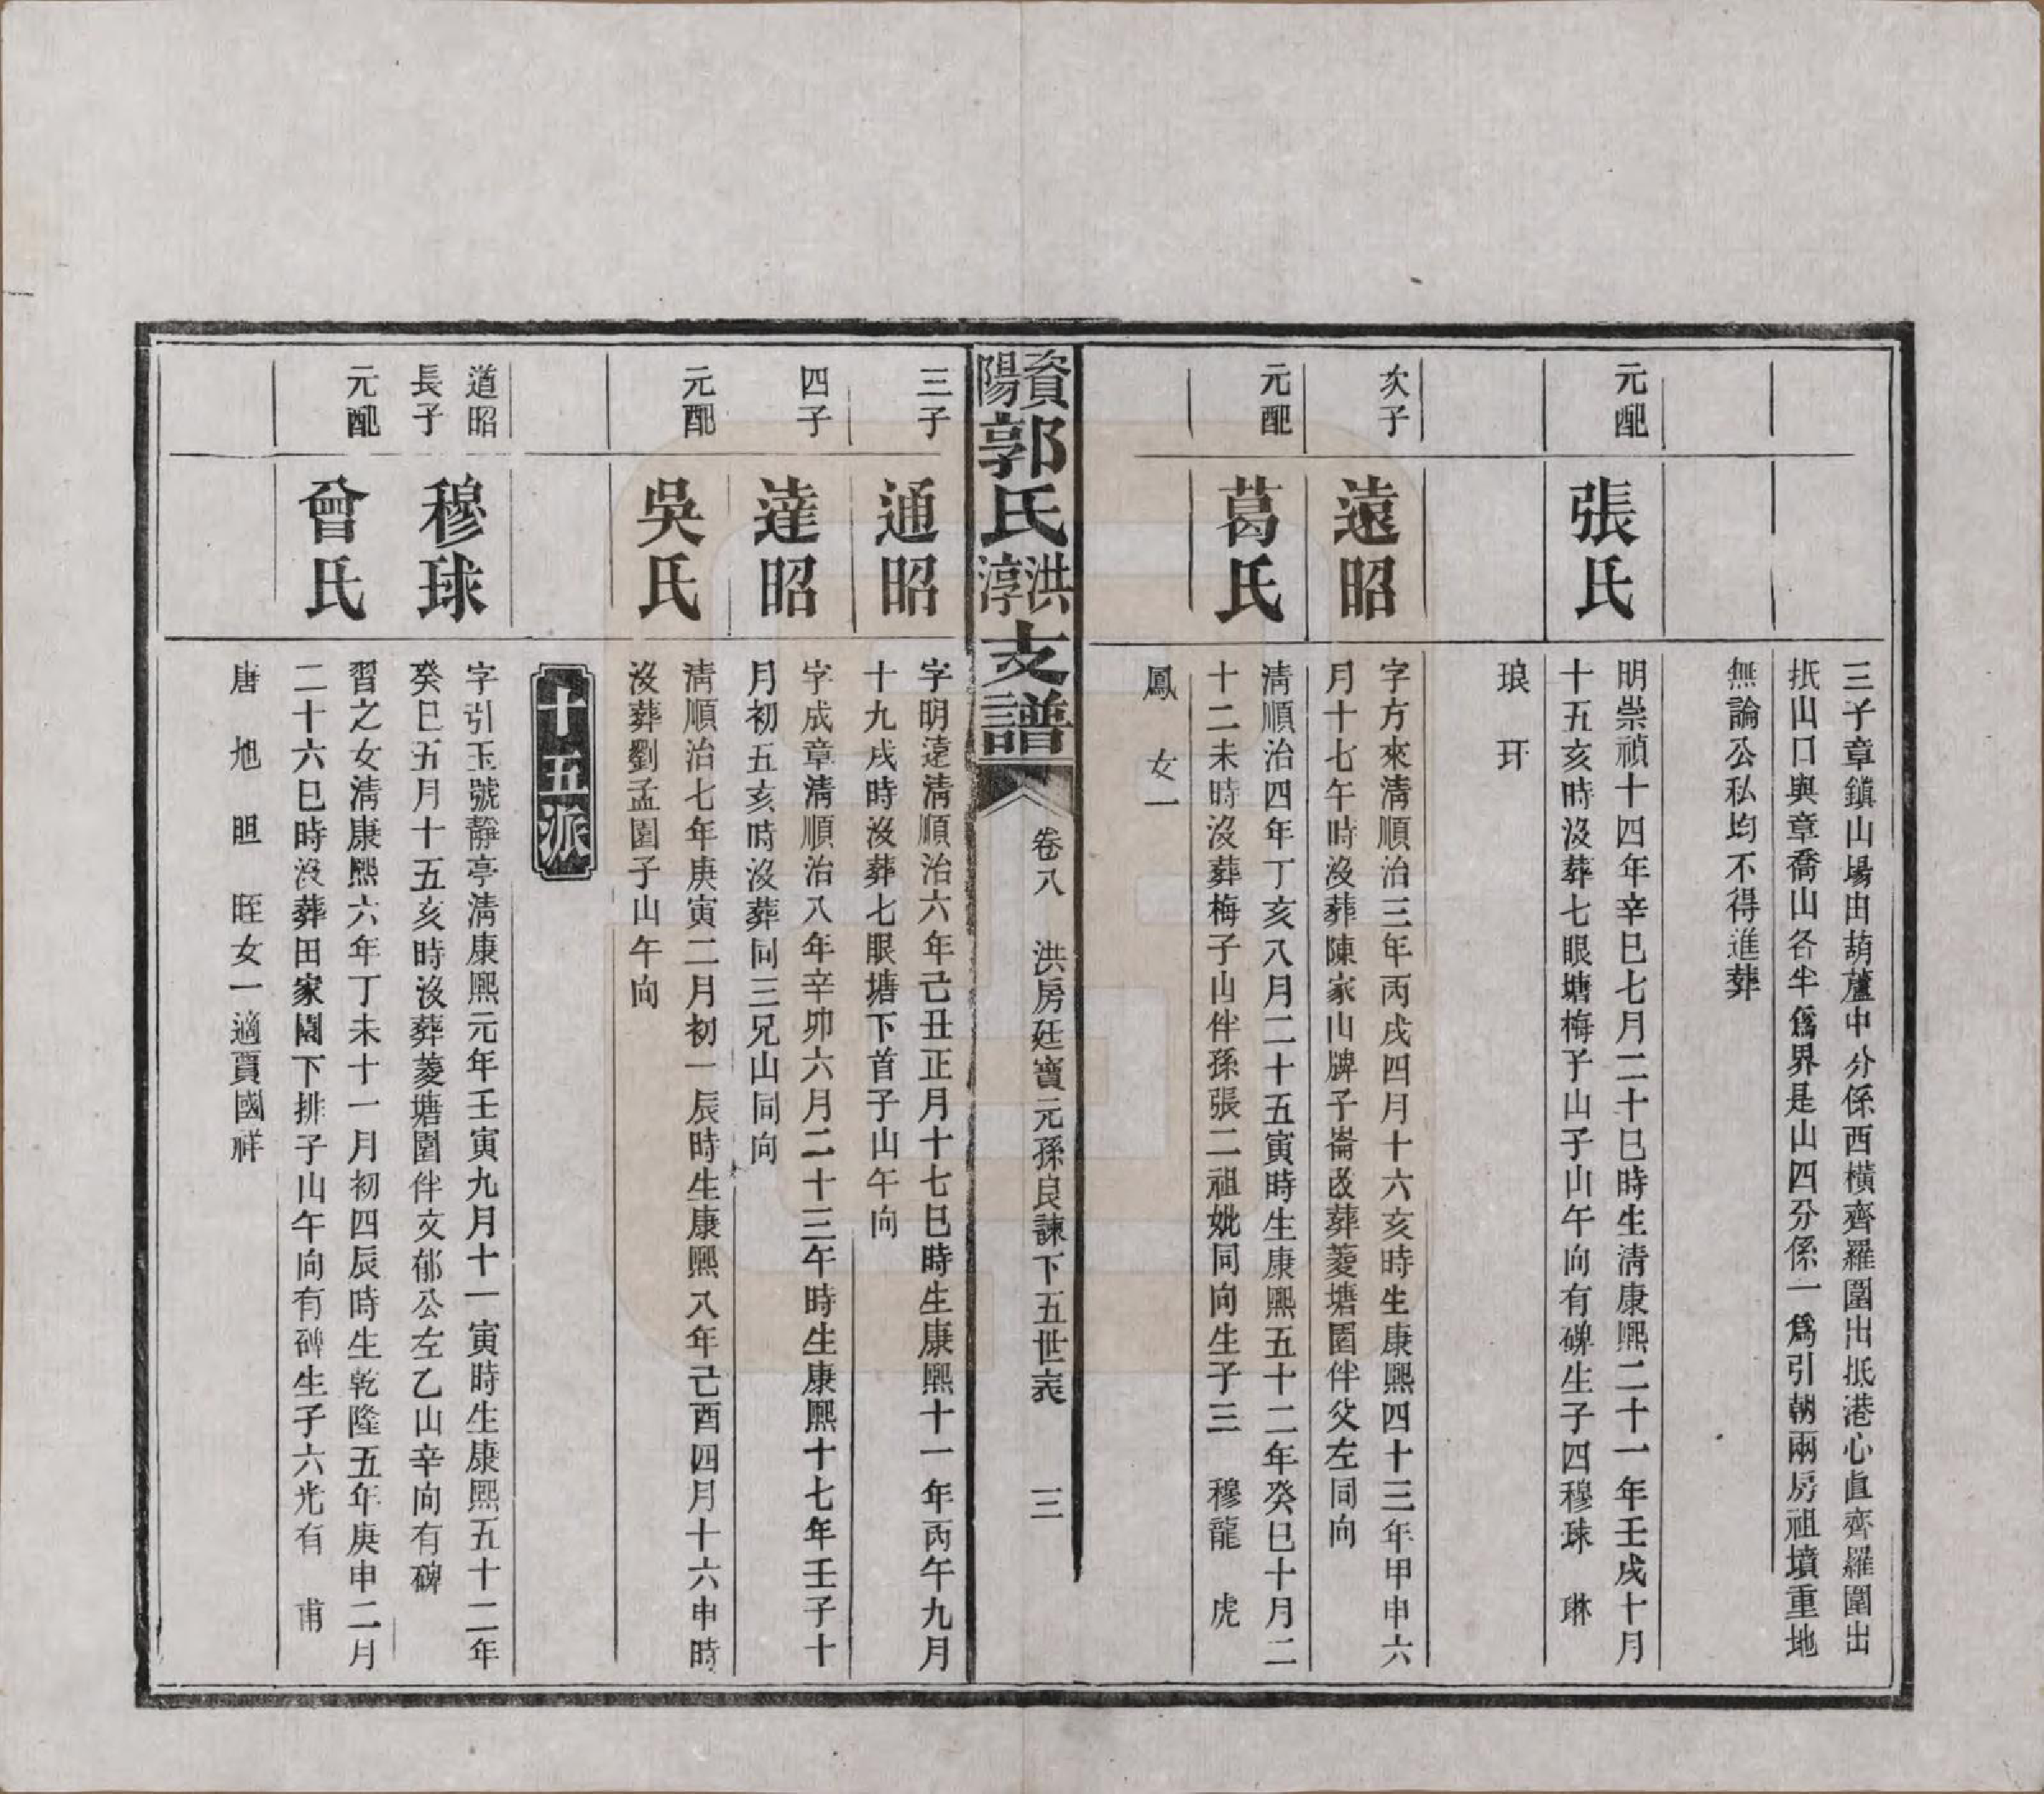 三子章鎮山場由葫蘆中分係西橫齊羅圍出抵港心直齊羅圍出
抵山口與章喬山各半爲界是山四分係一爲引朝兩房祖墳重地
無論公私均不得進葬
元配
張氏
明崇禎十四年辛巳七月二十巳時生淸康熙二十一年壬戌十月
十五亥時沒葬七眼塘梅子山子山午向有碑生子四穆球 琳
琅 玕
次子
遠昭
字方來淸順治三年丙戌四月十六亥時生康熙四十三年甲申六
月十七午時沒葬陳家山牌子崙改葬菱塘園伴父左同向
元配
葛氏
淸順治四年丁亥八月二十五寅時生康熙五十二年癸巳十月二
十二未時沒葬梅子山伴孫張二祖妣同向生子三 穆龍 虎
鳳 女一
資陽郭氏洪淳支譜
卷八 洪房廷寶元孫良諫下五世表 三
三子
通昭
字明遠淸順治六年己丑正月十七巳時生康熙十一年丙午九月
十九戌時沒葬七眼塘下首子山午向
四子
達昭
字成章淸順治八年辛卯六月二十三午時生康熙十七年壬子十
月初五亥時沒葬同三兄山同向
元配
吳氏
淸順治七年庚寅二月初一辰時生康熙八年己酉四月十六申時
沒葬劉孟園子山午向
十五派
道昭
長子
穆球
字引玉號靜亭淸康熙元年壬寅九月十一寅時生康熙五十二年
癸巳五月十五亥時沒葬菱塘園伴文郁公左乙山辛向有碑
元配
曾氏
習之女淸康熙六年丁未十一月初四辰時生乾隆五年庚申二月
二十六巳時沒葬田家園下排子山午向有碑生子六光有 甫
唐 旭 胆 晊女一適賈國祥